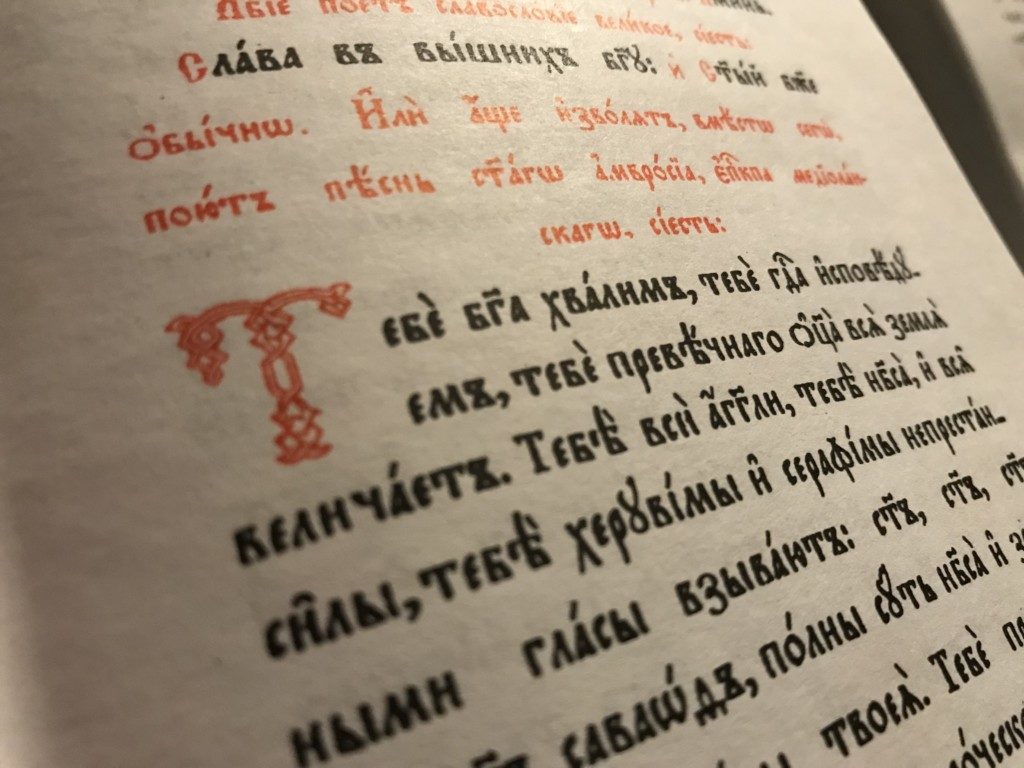 А҆́бїе пое́тъ славосло́вїе вели́кое, сїе́сть:
Сла́ва въ вы́шнихъ бг҃ꙋ: и҆ Ст҃ы́й бж҃е
ѻ҆бы́чнѡ. И҆лѝ а҆́ще и҆зво́лѧтъ, вмѣ́стѡ сегѡ̀,
пою́тъ пѣ́снь ст҃а́гѡ а҆мвро́сїа, є҆пⷭ҇кпа медїола́н-
скагѡ, сїе́сть:
Тебѐ бг҃а хва́лимъ, тебѐ гдⷭ҇а и҆сповѣ́дꙋ-
емъ, тебѐ превѣ́чнаго ѻ҆ц҃а̀ всѧ̀ землѧ̀
велича́етъ. Тебѣ̀ всѝ а҆́гг҃ли, тебѣ̀ нб҃са̀, и҆ всѧ̑
си̑лы, тебѣ̀ херꙋві́мы и҆ серафі́мы непреста́н-
ными гла́сы взыва́ютъ: ст҃ъ, ст҃ъ,
саваѡ́ѳъ, по́лны сꙋ́ть нб҃са̀ и҆
твоеѧ̀. Тебѐ